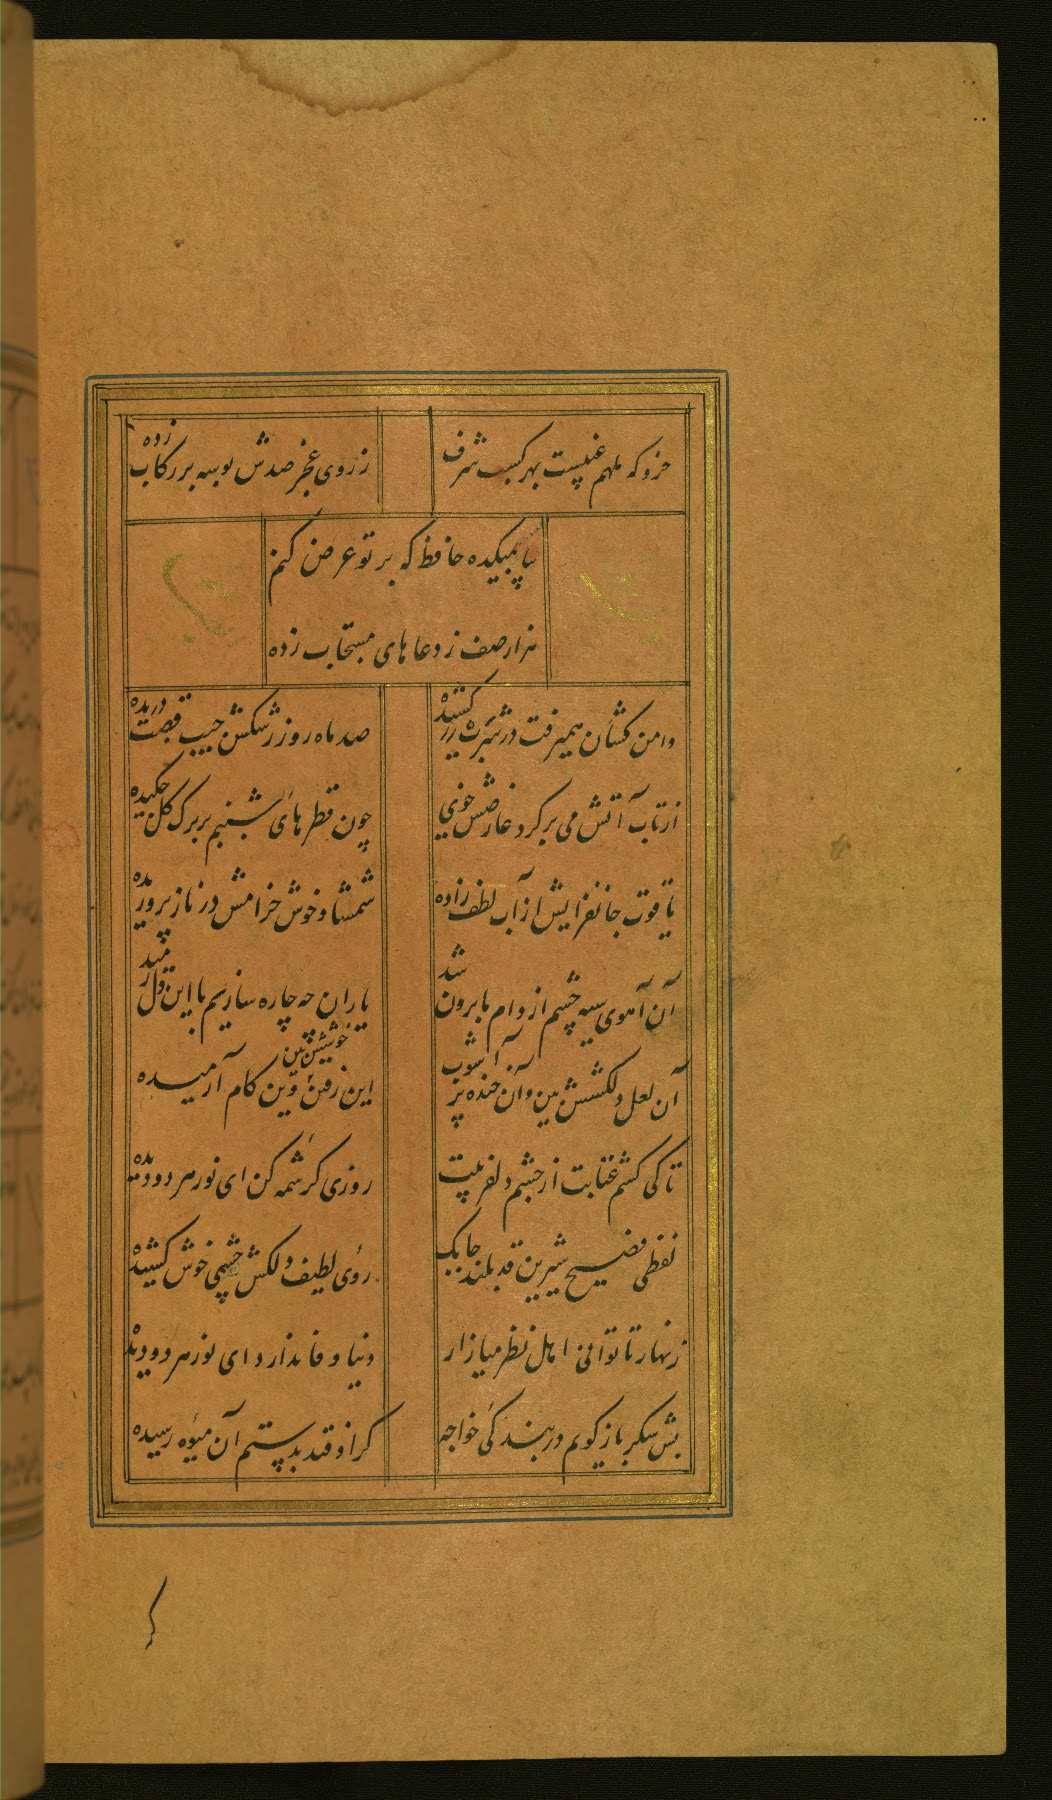 خرد که ملهم غیبست بهر کسب شرف
ز روی عجز صدش بوسه بر رکاب زده
بیا بمیکده حافظ که بر تو عرض کنم
هزار صف ز دعاهای مستجاب زده
دامن کشان همیرفت در شرب زر کشیده
صد ماه رو ز رشکش جیب قصب دریده
از تاب آتش می بر کرد عارضش خوی
چون قطرهای شبنم بر برک کل چکیده
یاقوت جانفزایش از آب لطف زاده
شمشاد خوش خرامش در ناز پروریده
آن آهوی سیه چشم از دام ما برون شد
یاران چه چاره سازیم با این دل رمیده
آن لعل دلکشش بین وآن خنده پر آشوب
این رفتن خوشش بین وین کام آرمیده
تا کی کشم عتابت از چشم دلفریبت
روزی کرشمه کن ای نور هر دو دیده
لفظی فصیح شیرین قد بلند چابک
روی لطیف دلکش چشمی خوش کشیده
زنهار تا توانی اهل نظر میازار
دنیا وفا ندارد ای نور هر دو دیده
بس شکر باز کویم در بندکی خواجه
کر اوفتد بدستم آن میوه رسیده
کر